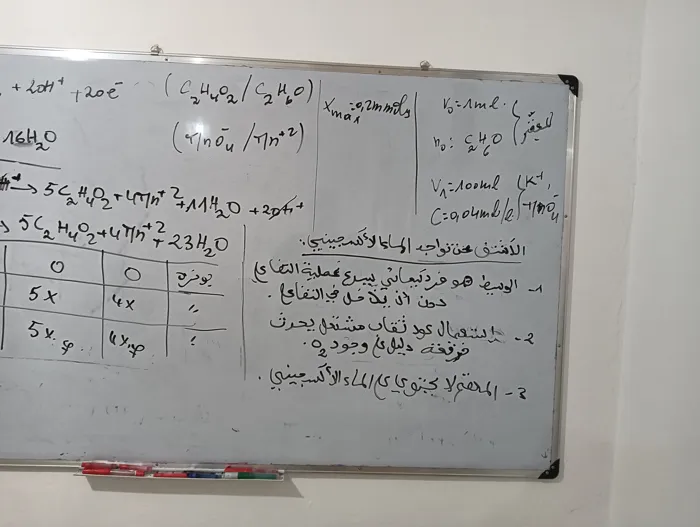 + 20H⁺ + 20é (C₂H₄O₂ / C₂H₆O)
16H₂O (MnO₄⁻ / Mn⁺²)
→ 5C₂H₄O₂ + 4Mn⁺² + 11H₂O +
→ 5C₂H₄O₂ + 4Mn⁺² + 23H₂O
0 0 بوفرة
5x 4x "
5x𝑓 4x𝑓 "
x max = 0,2 mmol
V₀ = 1ml
n₀: C₂H₆O
V₁ = 100ml (K⁺,
C = 0,04mol/l MnO₄⁻
الكشف عن تواجد الماء الأكسجيني.
1- الوسيط هو فرد كيميائي يسرع عملية التفاعل
دون أن يدخل في التفاعل.
2- استعمال عود ثقاب مشتعل يحدث
فرقعة دليل على وجود O₂.
3- المعقم لا يحتوي على الماء الأكسجيني.